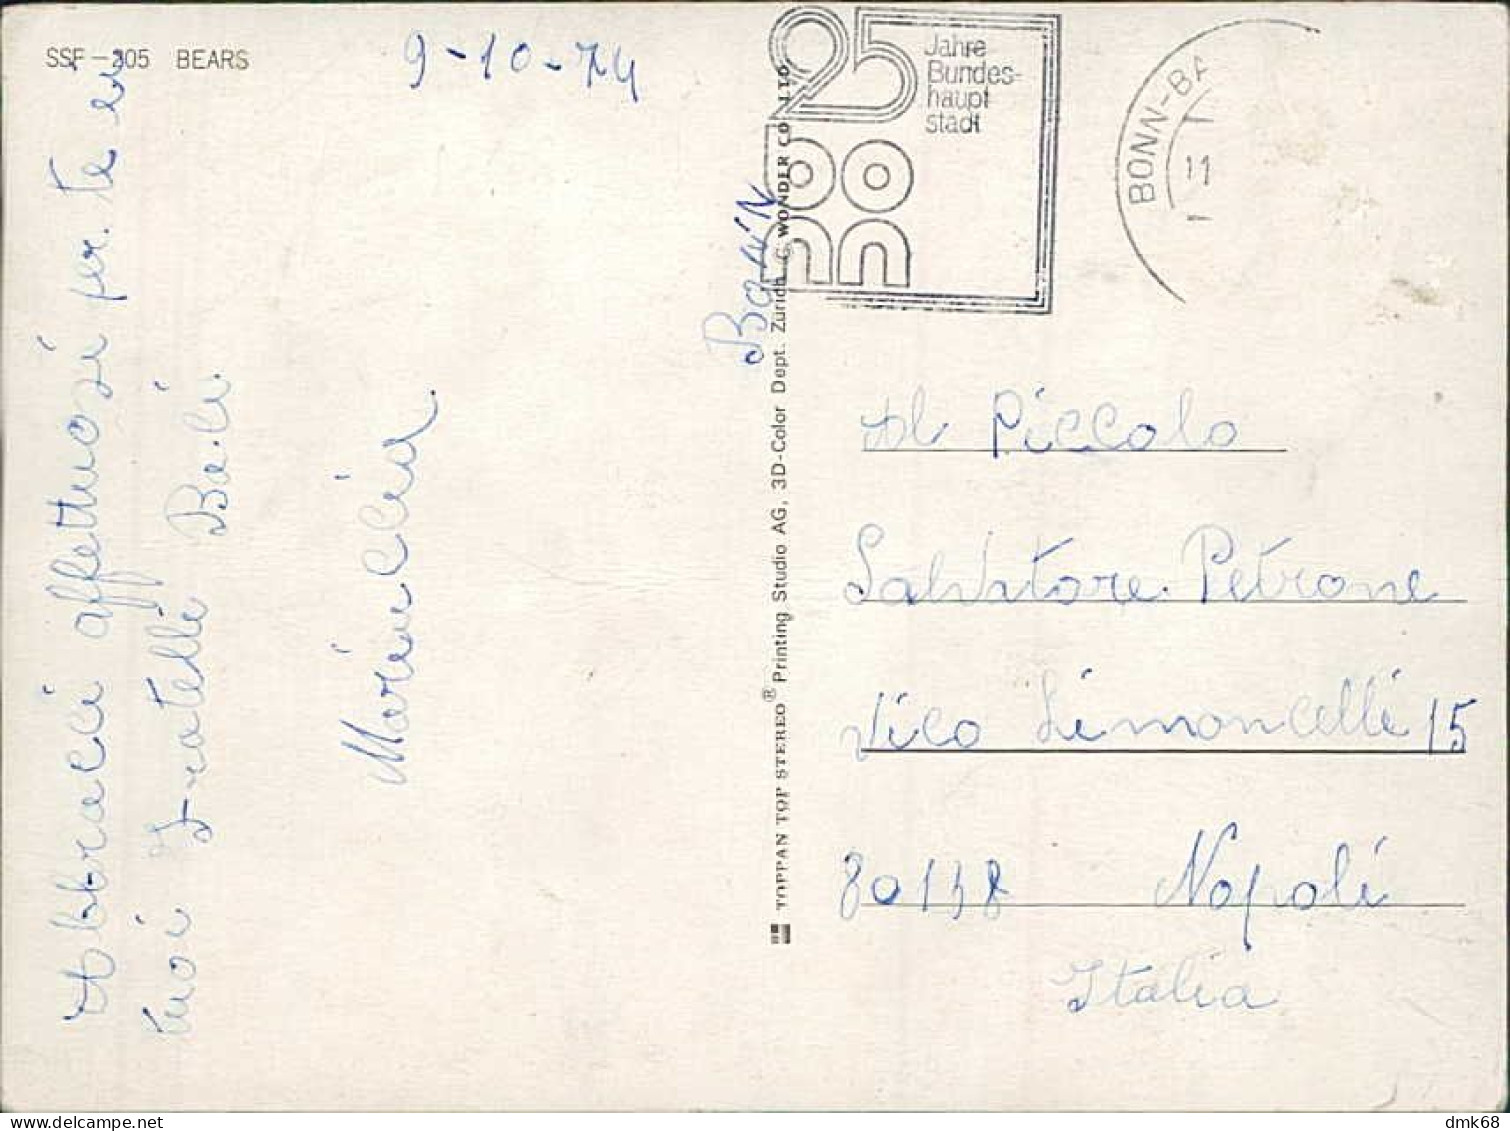 SSF-205 BEARS
9-10-74
Abbracci affettuosi per te ei
tuoi fratelli Baci
Mariuccia
BONN
TOPPAN TOP STEREO® Printing Studio AG, 3D-Color Dept. Zürich © WONDER CO., LTD.
25
Jahre
Bundes-
haupt
stadt
BONN-BA
11
Al Piccolo
Salvatore Petrone
Vico Limoncelli 15
80138 Napoli
Italia
dmk68